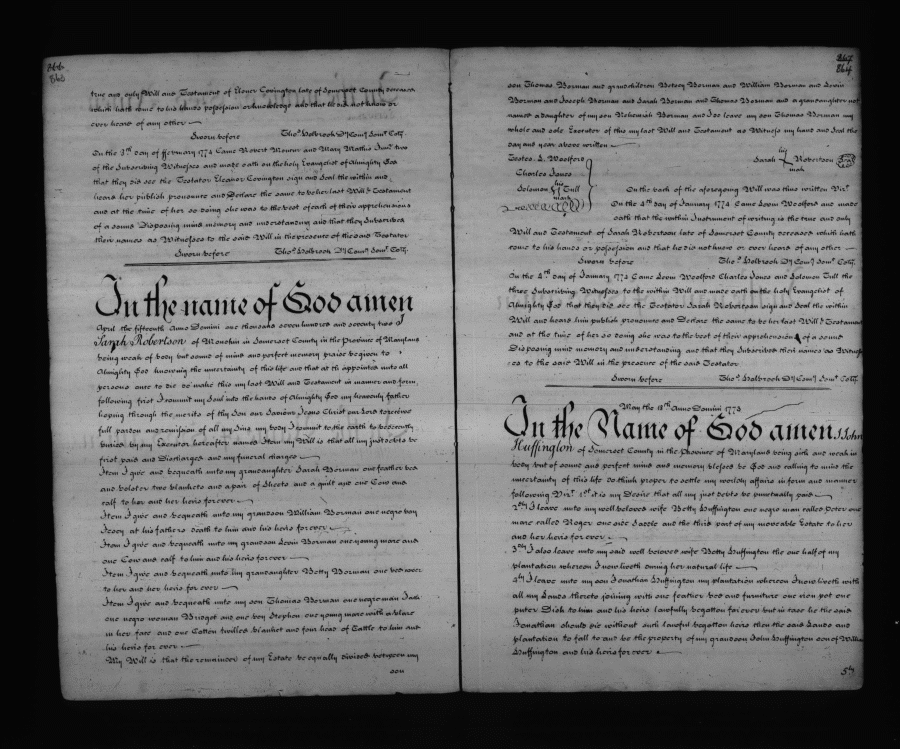 366
863
true and only Will and Testament of Eloner Covington late of Somerset County deceased
which hath come to his hands possession or knowledge and that he did not know or
ever heard of any other
Sworn before Thos. Holbrook Dy Comy Somt Coty.
On the 3rd day of February 1774 Came Robert Monroe and Mary Mathis Junr two
of the Subscribing Witnesses and made oath on the holy Evangelist of Almighty God
that they did see the Testator Eleanor Covington sign and Seal the within and
heard her publish pronounce and Declare the same to be her last Will & Testament
and at the time of her so doing she was to the best of each of their apprehensions
of a sound Disposing mind memory and understanding and that they Subscribed
their names as Witnesses to the said Will in the presence of the said Testator
Sworn before Thos. Holbrook Dy Comy Somt Coty.
In the name of God amen
April the fifteenth Anno Domini one thousand seven hundred and seventy two I
Sarah Robertson of Monokin in Somerset County in the Province of Maryland
being weak of body but some of mind and perfect memory praise be given to
Almighty God knowing the uncertainty of this life and that as th appointed unto all
persons once to die do make this my last Will and Testament in manner and form
following first I commit my Soul into the hands of Almighty God my heavenly father
hoping through the merits of thy Son our Saviour Jesus Christ our Lord to receive
full pardon and remission of all my Sins my body I commit to the earth to be decently
buried by my Executor hereafter named Item my Will is that all my just debts be
first paid and Discharged and my funeral charges
Item I give and bequeath unto my grandaughter Sarah Dorman one feather bed
and bolster two blankets and a pair of Sheets and a quilt and one Cow and
calf to her and her heirs forever
Item I give and bequeath unto my grandson William Dorman one negro boy
at his fathers death to him and his heirs for ever
Item I give and bequeath unto my grandson Levin Dorman one young mare and
one Cow and calf to him and his heirs for ever
Item I give and bequeath unto my grandaughter Betty Dorman one bed
to her and her heirs for ever
Item I give and bequeath unto my son Thomas Dorman one negro man Jack
one negro woman Bridget and one boy Stephen one young mare with a blaze
in her face and one Cotton twilled blanket and four head of Cattle to him and
his heirs for ever
My Will is that the remainder of my Estate be equally divided between my
son
367
864
son Thomas Dorman and grandchildren Betsey Dorman and William Dorman and Levin
Dorman and Joseph Dorman and Sarah Dorman and Thomas Dorman and a grandaughter not
named a daughter of my son Nehemiah Dorman and I do leave my son Thomas Dorman my
whole and sole Executor of this my last Will and Testament as Witness my hand and Seal the
day and year above written
Testes L. Woolford
Charles Jones
Solomon his mark Tull
Sarah her mark Robertson Seal
On the back of the aforegoing Will was thus written Vizt.
On the 4th day of January 1774 Came Levin Woolford and made
oath that the within Instrument of writing is the true and only
Will and Testament of Sarah Robertson late of Somerset County deceased which hath
come to his hands or possession and that he did not know or ever heard of any other
Sworn before Thos. Holbrook Dy Comy Somt Coty.
On the 4th day of January 1774 Came Levin Woolford Charles Jones and Solomon Tull the
three Subscribing Witnesses to the within Will and made oath on the holy Evangelist of
Almighty God that they did see the Testator Sarah Robertson sign and Seal the within
Will and heard him publish pronounce and Declare the same to be her last Will & Testament
and at the time of her so doing she was to the best of their apprehensions of a sound
Disposing mind memory and understanding and that they Subscribed their names as Witness
es to the said Will in the presence of the said Testator
Sworn before Thos. Holbrook Dy Comy Somt Coty.
May the 18th Anno Domini 1773
In the Name of God amen I John
Huffington of Somerset County in the Province of Maryland being sick and weak in
body but of sound and perfect mind and memory blessed be God and calling to mind the
uncertainty of this life do think proper to settle my worldly affairs in form and manner
following Vizt. 1st it is my Desire that all my just debts be punctually paid
2ndly I leave unto my well beloved wife Betty Huffington one negro man called Peter one
mare called Roger one side Saddle and the third part of my moveable Estate to her
and her heirs for ever
3dly I also leave unto my said well beloved wife Betty Huffington the one half of my
plantation whereon I now liveth during her natural life
4ly I leave unto my son Jonathan Huffington my plantation whereon I now liveth with
all my Lands thereto joining with one feather bed and furniture one iron pot one
puter Dish to him and his heirs lawfully begotten for ever but in case he the said
Jonathan should die without such lawful begotten heirs then the said Lands and
plantation to fall to and be the property of my grandson John Huffington son of William
Huffington and his heirs for ever
5ly